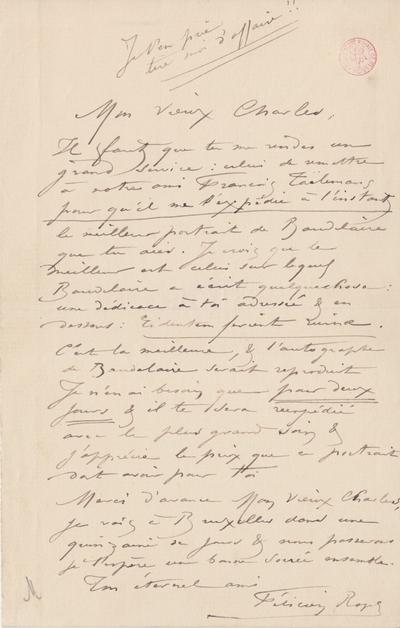 Je t'en prie
tire moi d'affaire !!
Mon Vieux Charles,
Il faut que tu me rendes un
grand service : celui de remettre
à notre ami François Taelemans
pour qu'il me l'expédie à l'instant
le meilleur portrait de Baudelaire
que tu aies. Je crois que le
meilleur est celui sur lequel
Baudelaire a écrit quelquechose :
une dédicace à toi adressée & en
dessous : ridentem ferient ruinæ.
C'est la meilleure, & l'autographe
de Baudelaire serait reproduit
Je n'en ai besoin que pour deux
jours & il te sera réexpédié
avec le plus grand soin &
j'apprécie le prix que ce portrait
doit avoir pour toi
Merci d'avance Mon Vieux Charles,
je vais à Bruxelles dans une
quinzaine de jours & nous passerons
je l'espère une bonne soirée ensemble.
Ton éternel ami
Félicien Rops
M